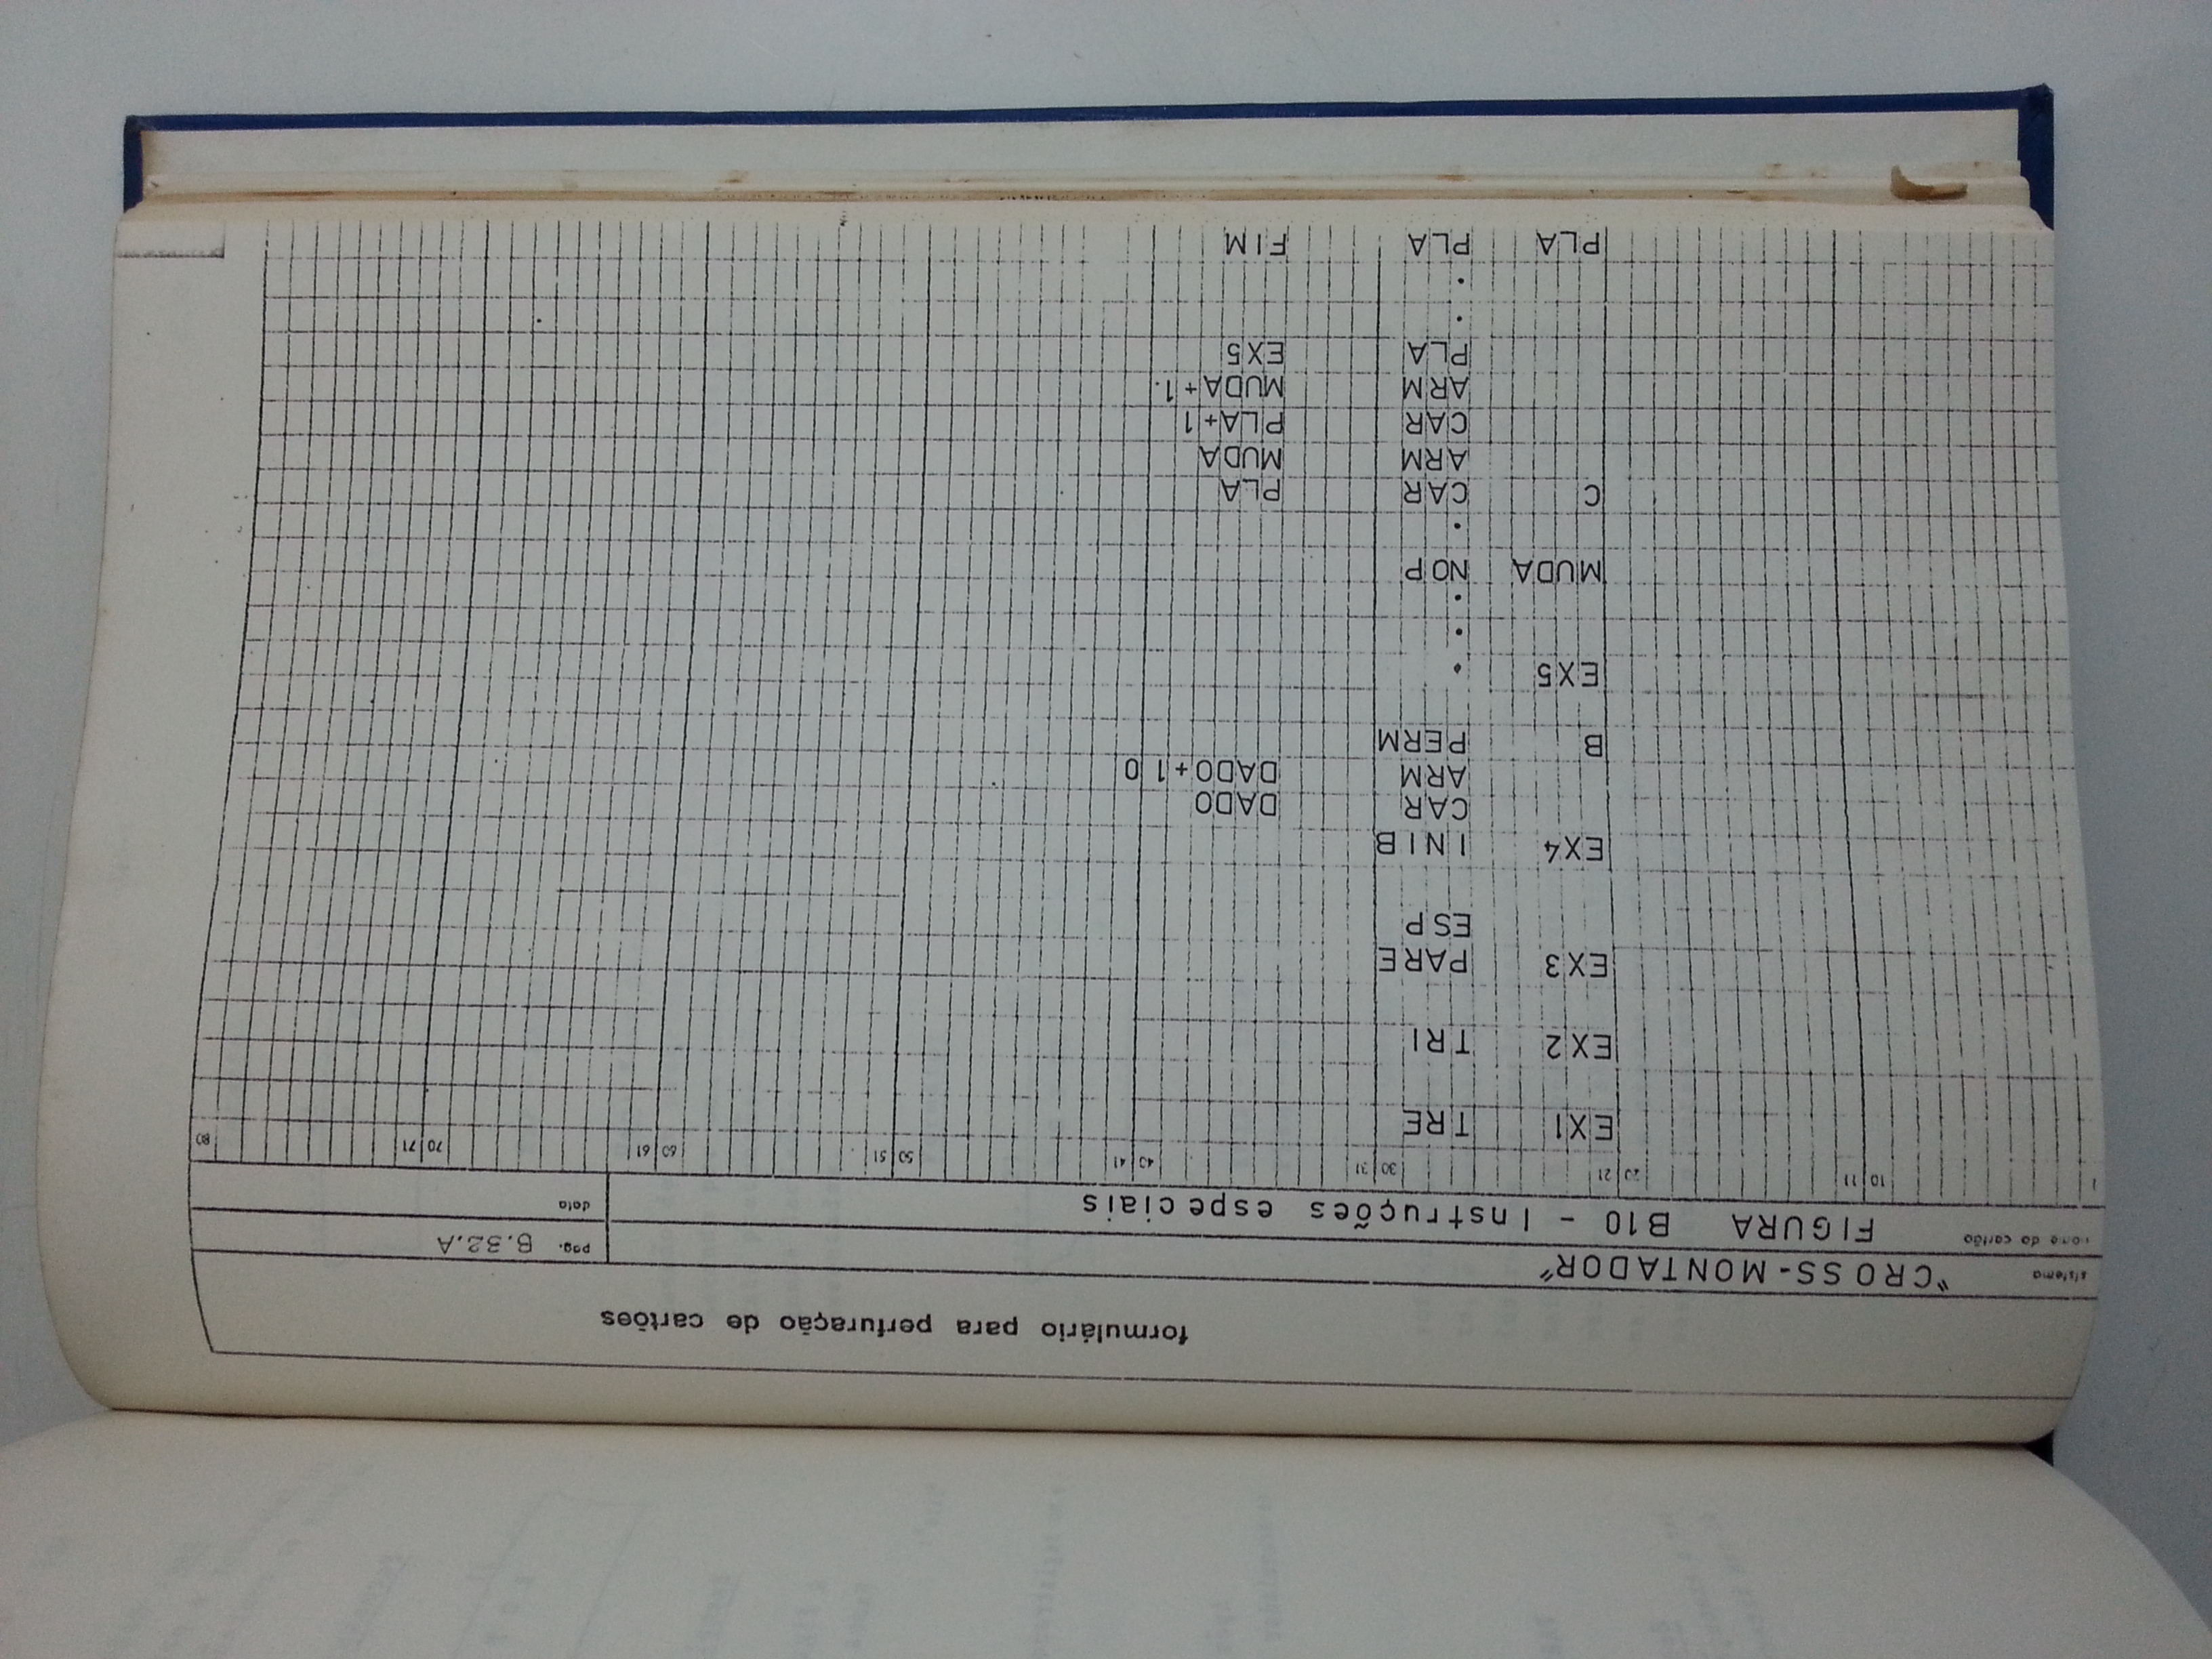 formulário para perfuração de cartões
sistema "CROSS-MONTADOR" pág. B.32.A
nome do cartão FIGURA B10 - Instruções especiais data
1 10 11 20 21 30 31 40 41 50 51 60 61 70 71 80
EX1 TRE
EX2 TRI
EX3 PARE
ESP
EX4 INIB
CAR DADO
ARM DADO+1 0
B PERM
EX5 .
.
.
MUDA NOP
.
C CAR PLA
ARM MUDA
CAR PLA+1
ARM MUDA+1.
PLA EX5
.
.
PLA PLA FIM